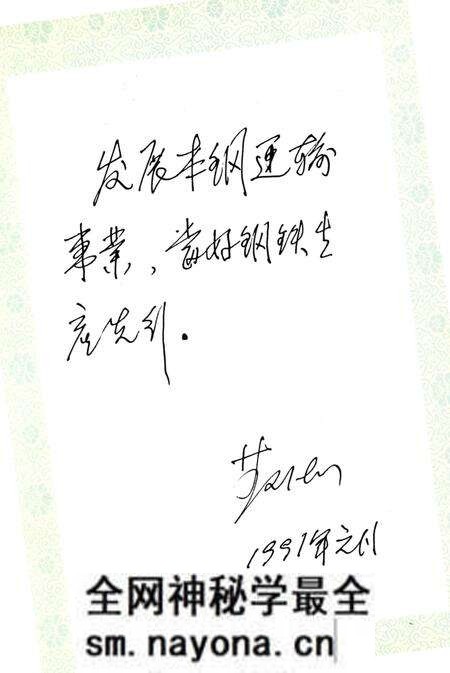 发展本钢運输
事業、當好钢铁生
産先行.
1997年元月
全网神秘学最全
sm.nayona.cn